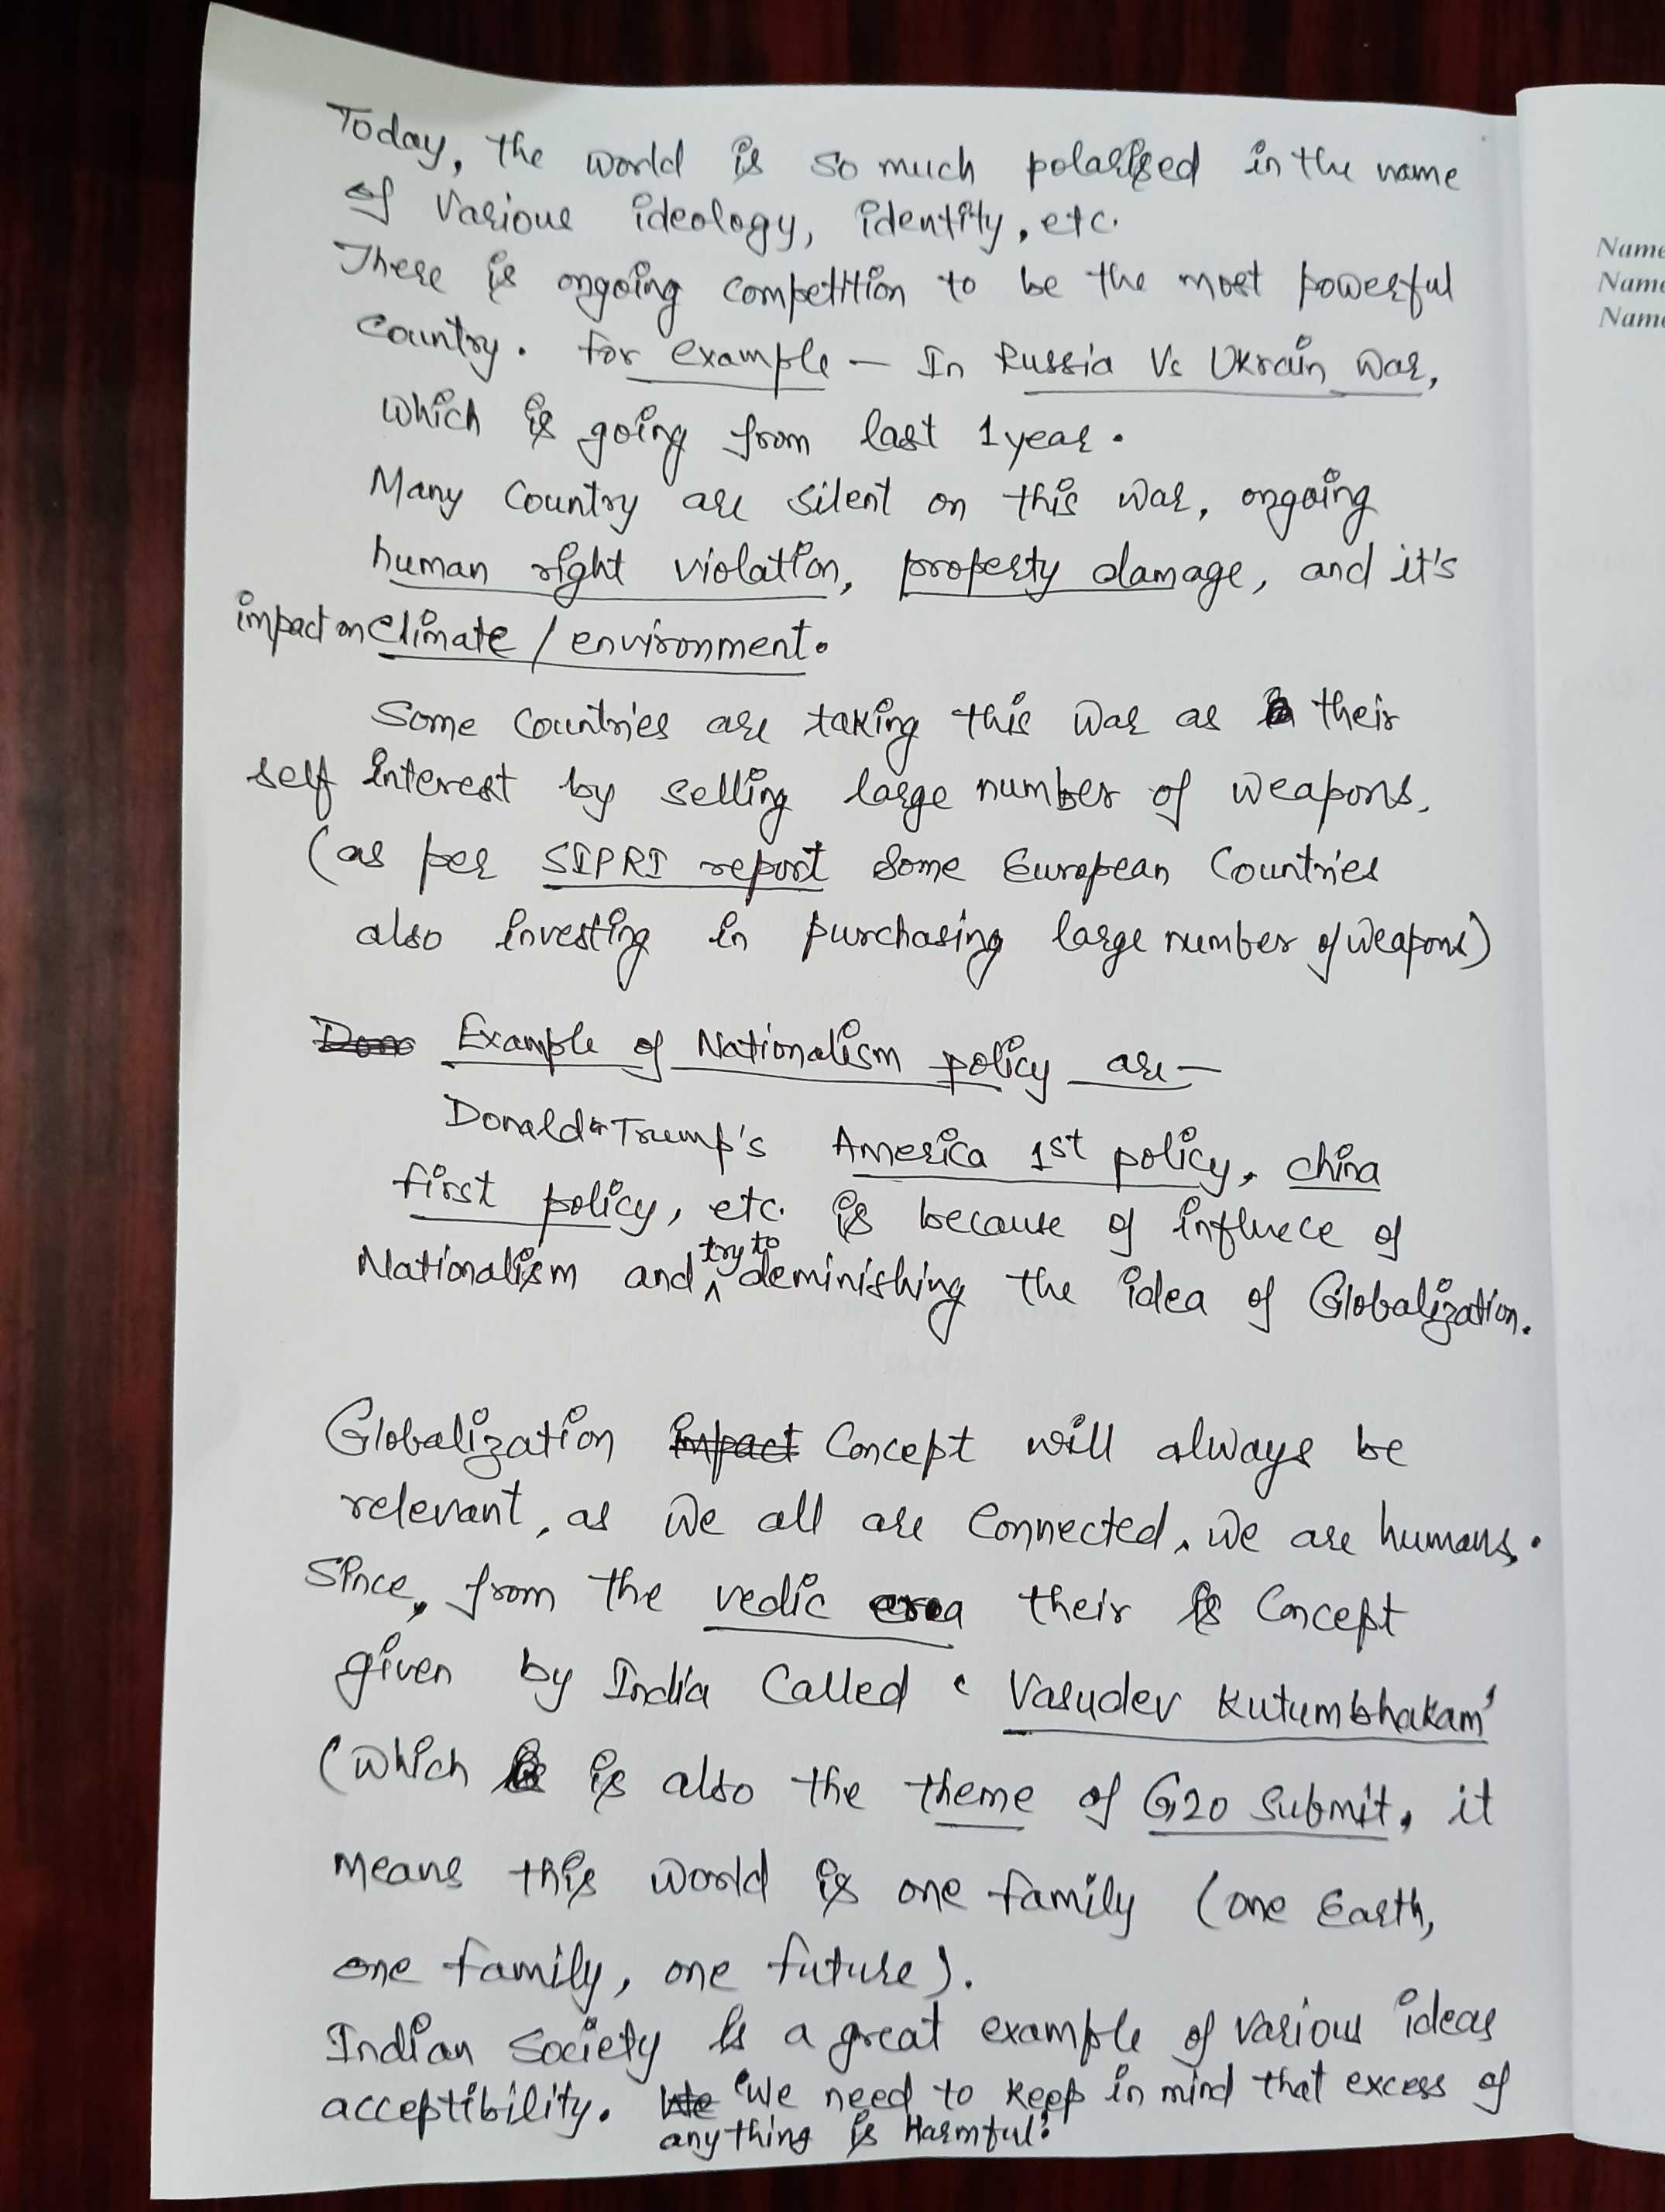 Today, the world is so much polarised in the name
of various ideology, identity, etc.
There is ongoing competition to be the most powerful
country. for example - In Russia Vs Ukrain war,
which is going from last 1 year.
Many Country are silent on this war, ongoing
human right violation, property damage, and it's
impact on climate / environment.
Some Countries are taking this war as their
self interest by selling large number of weapons.
(as per SIPRI report some European Countries
also investing in purchasing large number of weapons)
Example of Nationalism policy are -
Donald Trump's America 1st policy, china
first policy, etc. is because of influece of
Nationalism and try to deminishing the idea of Globalization.
Globalization impact Concept will always be
relevant, as we all are connected, we are humans.
Since, from the vedic area their is Concept
given by India Called 'Vasudev Kutumbhakam'
(which is also the theme of G20 Submit, it
means this world is one family (one Earth,
one family, one future).
Indian Society is a great example of various ideas
acceptibility. We "We need to keep in mind that excess of
anything is Harmful."
Name
Name
Name